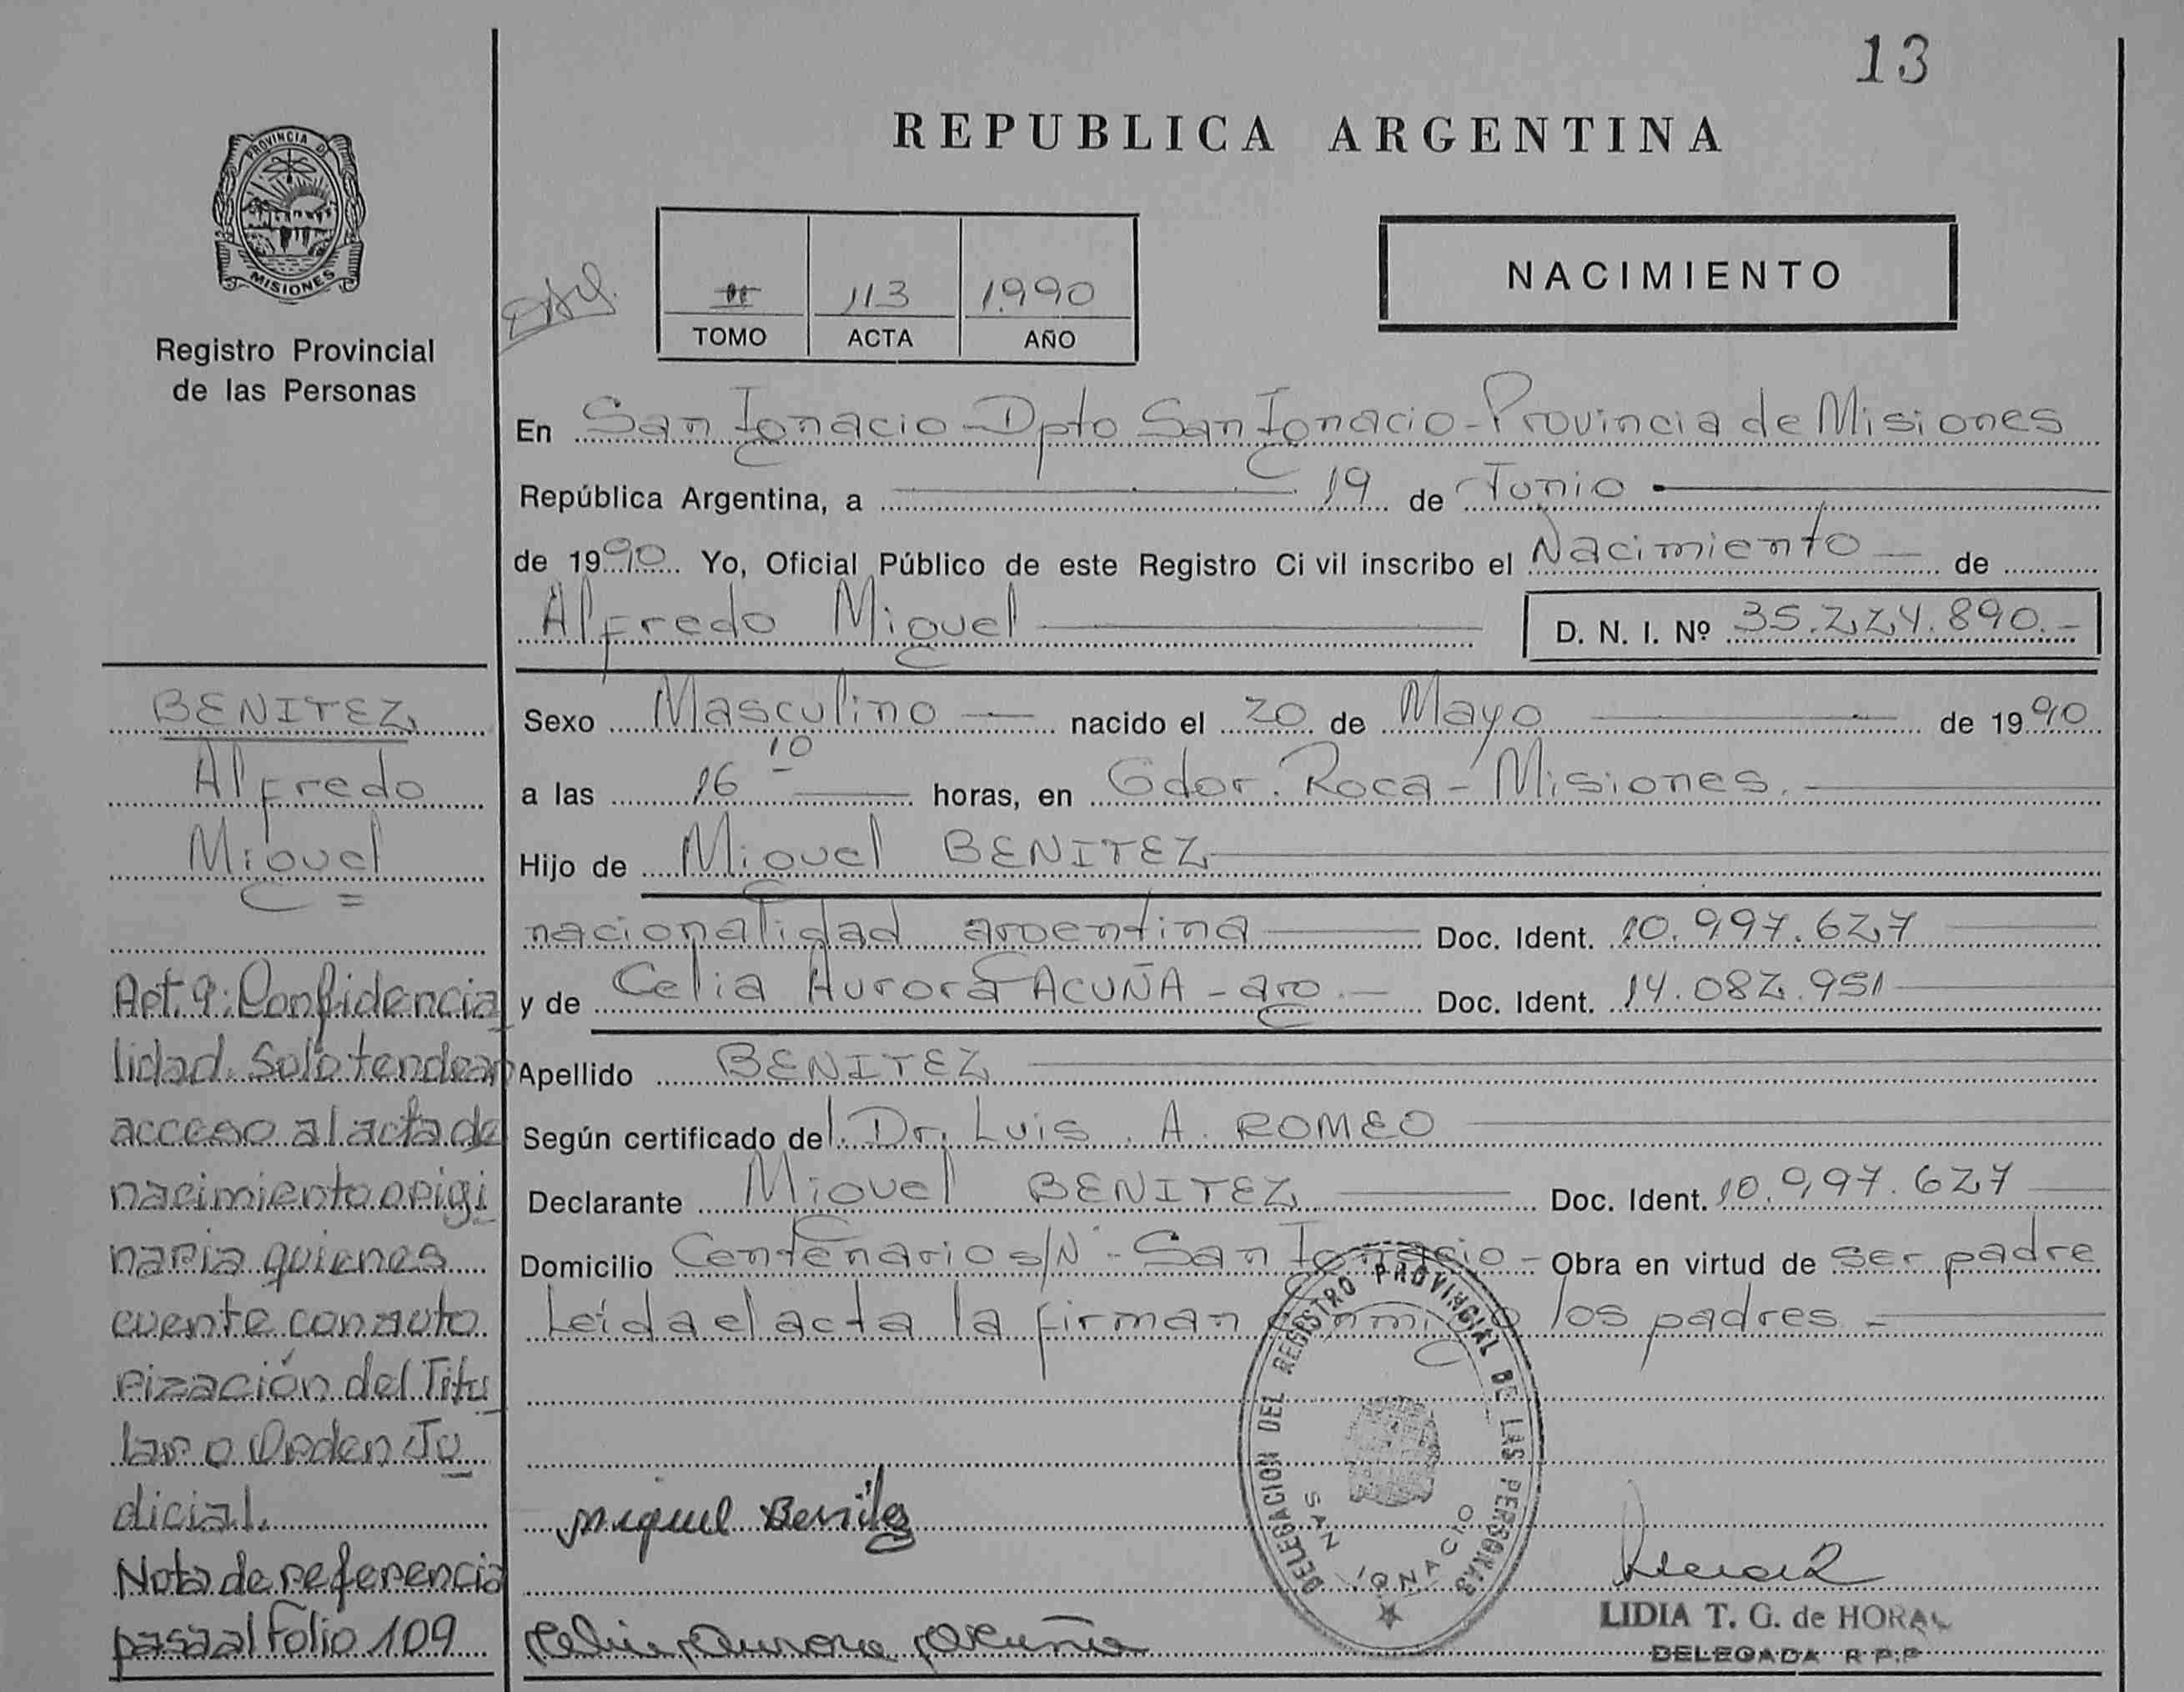 13
REPUBLICA ARGENTINA
PROVINCIA DE
MISIONES
Registro Provincial
de las Personas
II 113 1990
TOMO ACTA AÑO
NACIMIENTO
En San Ignacio - Dpto San Ignacio - Provincia de Misiones
República Argentina, a 19 de Junio
de 1990 Yo, Oficial Público de este Registro Civil inscribo el Nacimiento de
Alfredo Miguel D. N. I. Nº 35.224.890.-
Sexo Masculino nacido el 20 de Mayo de 1990
a las 16 10 horas, en Gdor. Roca - Misiones.
Hijo de Miguel BENITEZ
nacionalidad argentina Doc. Ident. 10.997.627
y de Celia Aurora ACUÑA - arg. Doc. Ident. 14.082.951
Apellido BENITEZ
Según certificado del Dr. Luis A. ROMEO
Declarante Miguel BENITEZ Doc. Ident. 10.997.627
Domicilio Centenario s/Nº - San Ignacio - Obra en virtud de ser padre
Leída el acta la firman conmigo los padres -
BENITEZ
Alfredo
Miguel
Art. 9: Confidencia
lidad. Solo tendran
acceso al acta de
nacimiento origi
naria quienes
cuente con auto
rización del Titu
lar o Orden Ju
dicial.
Nota de referencia
pasa al Folio 109
Miguel Benitez
Celia Aurora Acuña
DELEGACION DEL REGISTRO PROVINCIAL DE LAS PERSONAS
SAN IGNACIO
LIDIA T. G. de HORAL
DELEGADA R.P.P